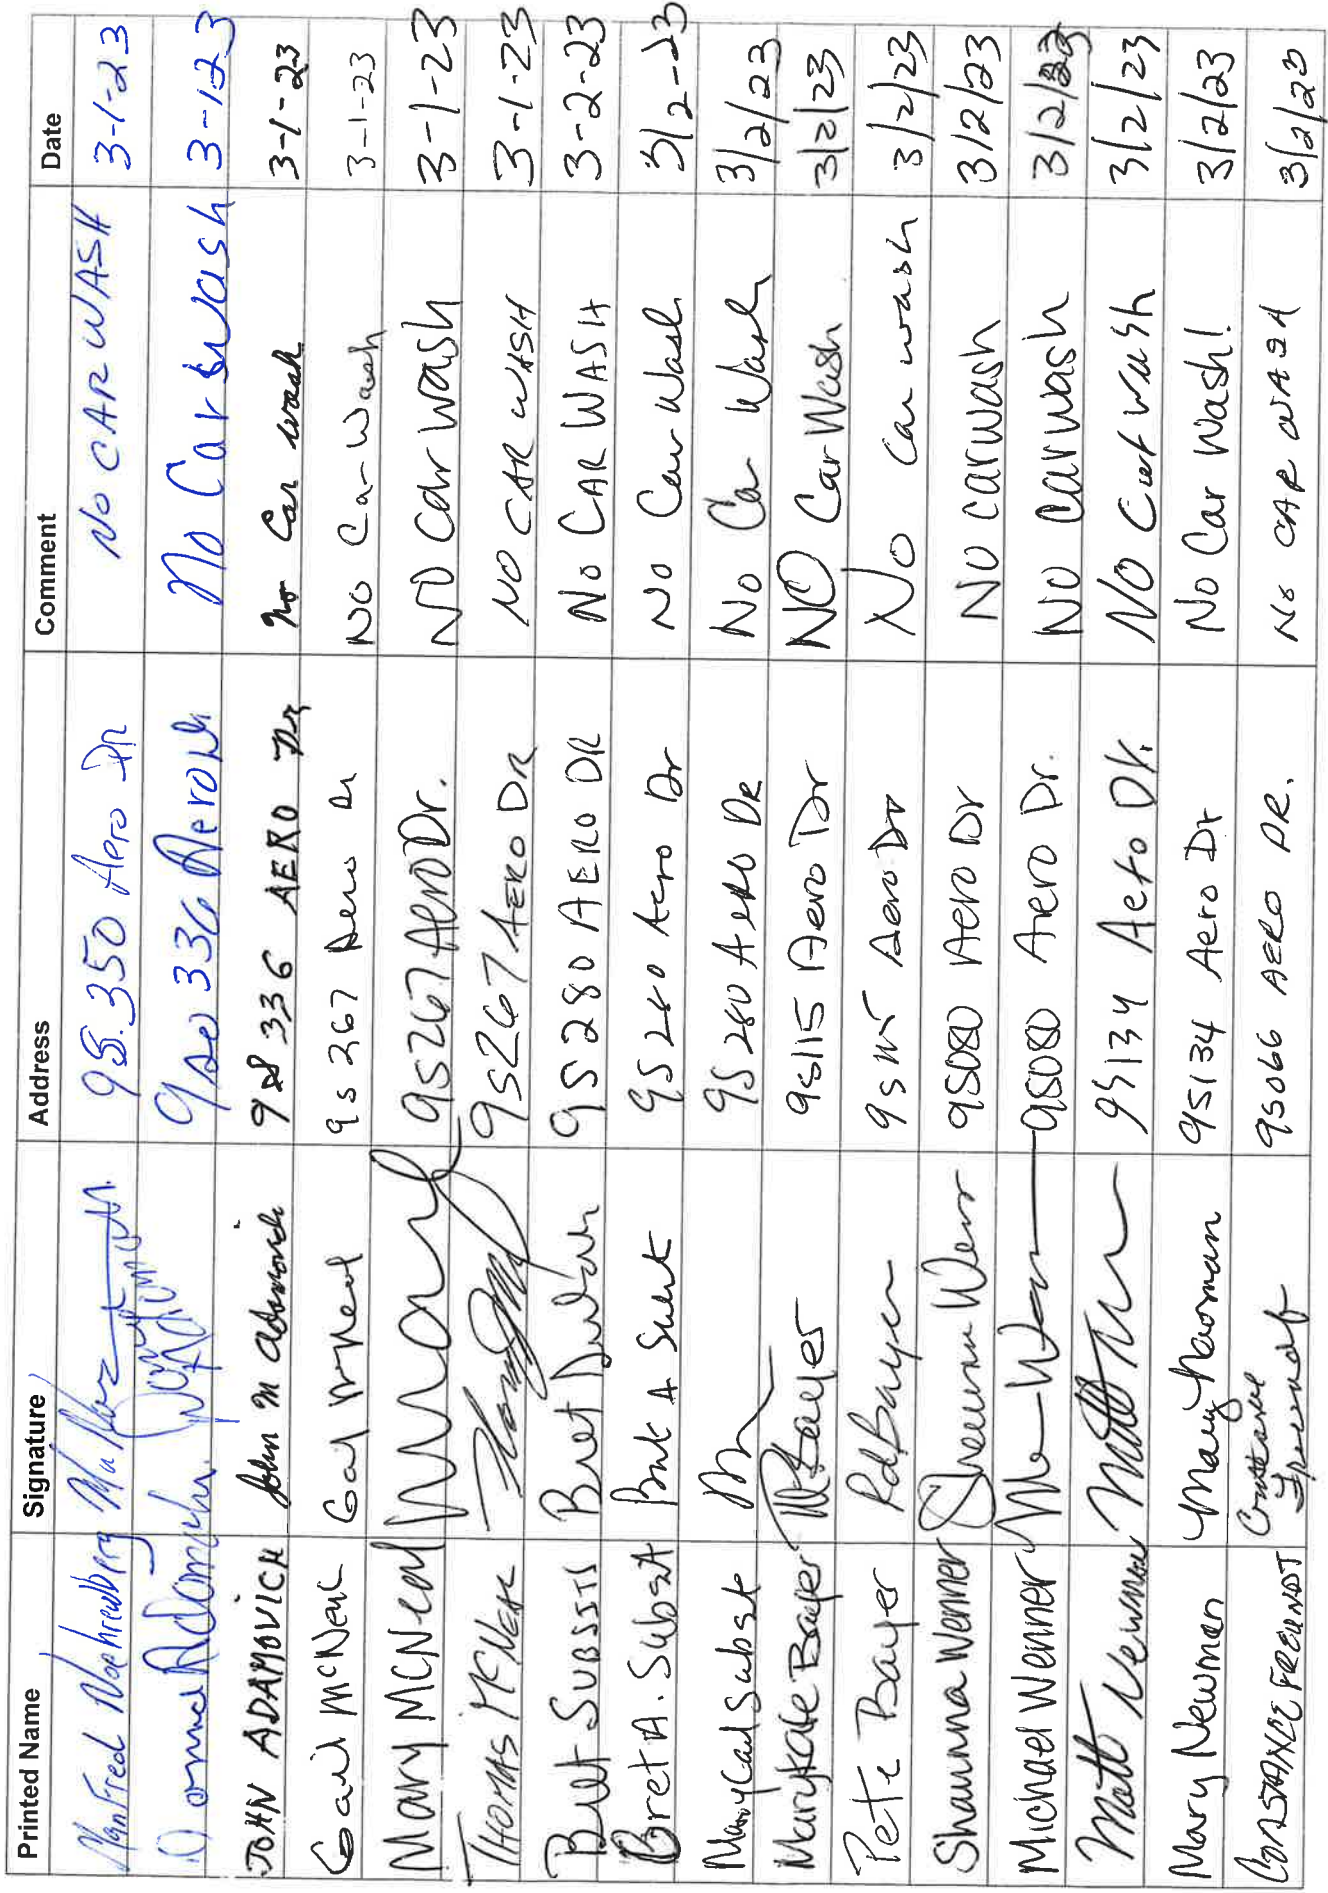 Printed Name Signature Address Comment Date
ManFred 9S.350 Aero DR No CAR WASH 3-1-23
Donna Adamovich 9so 336 Aero No Car Wash 3-1-23
JOHN ADAMOVICH John M Adamovich 9S 336 AERO Dr No Car wash 3-1-23
Gail McNeil Gail McNeil 9S 267 Aero Dr No Car Wash 3-1-23
Mary McNeal 9S267 Aero Dr. NO Car wash 3-1-23
THOMAS 9S267 AERO DR NO CAR WASH 3-1-23
9S280 AERO DR No CAR WASH 3-2-23
Bret A. Subsit Bret A 9S 280 Aero Dr No Car Wash 3/2-23
9S 280 Aero DR No Car Wash 3/2/23
Marykate Bayer 9S115 Aero Dr NO Car Wash 3/2/23
Pete Bayer Bayer 9S115 Aero Dr No Car wash 3/2/23
Shaunna Wenner 9S080 Aero Dr No carwash 3/2/23
Michael Wenner 9S080 Aero Dr. No Carwash 3/2/23
Matt Newman Matt 9S134 Aero Dr. NO Car wash 3/2/23
Mary Newman Mary Newman 9S134 Aero Dr No Car Wash! 3/2/23
CONSTANCE FREUNDT Constance Freundt 9S066 AERO DR. No CAR WASH 3/2/23